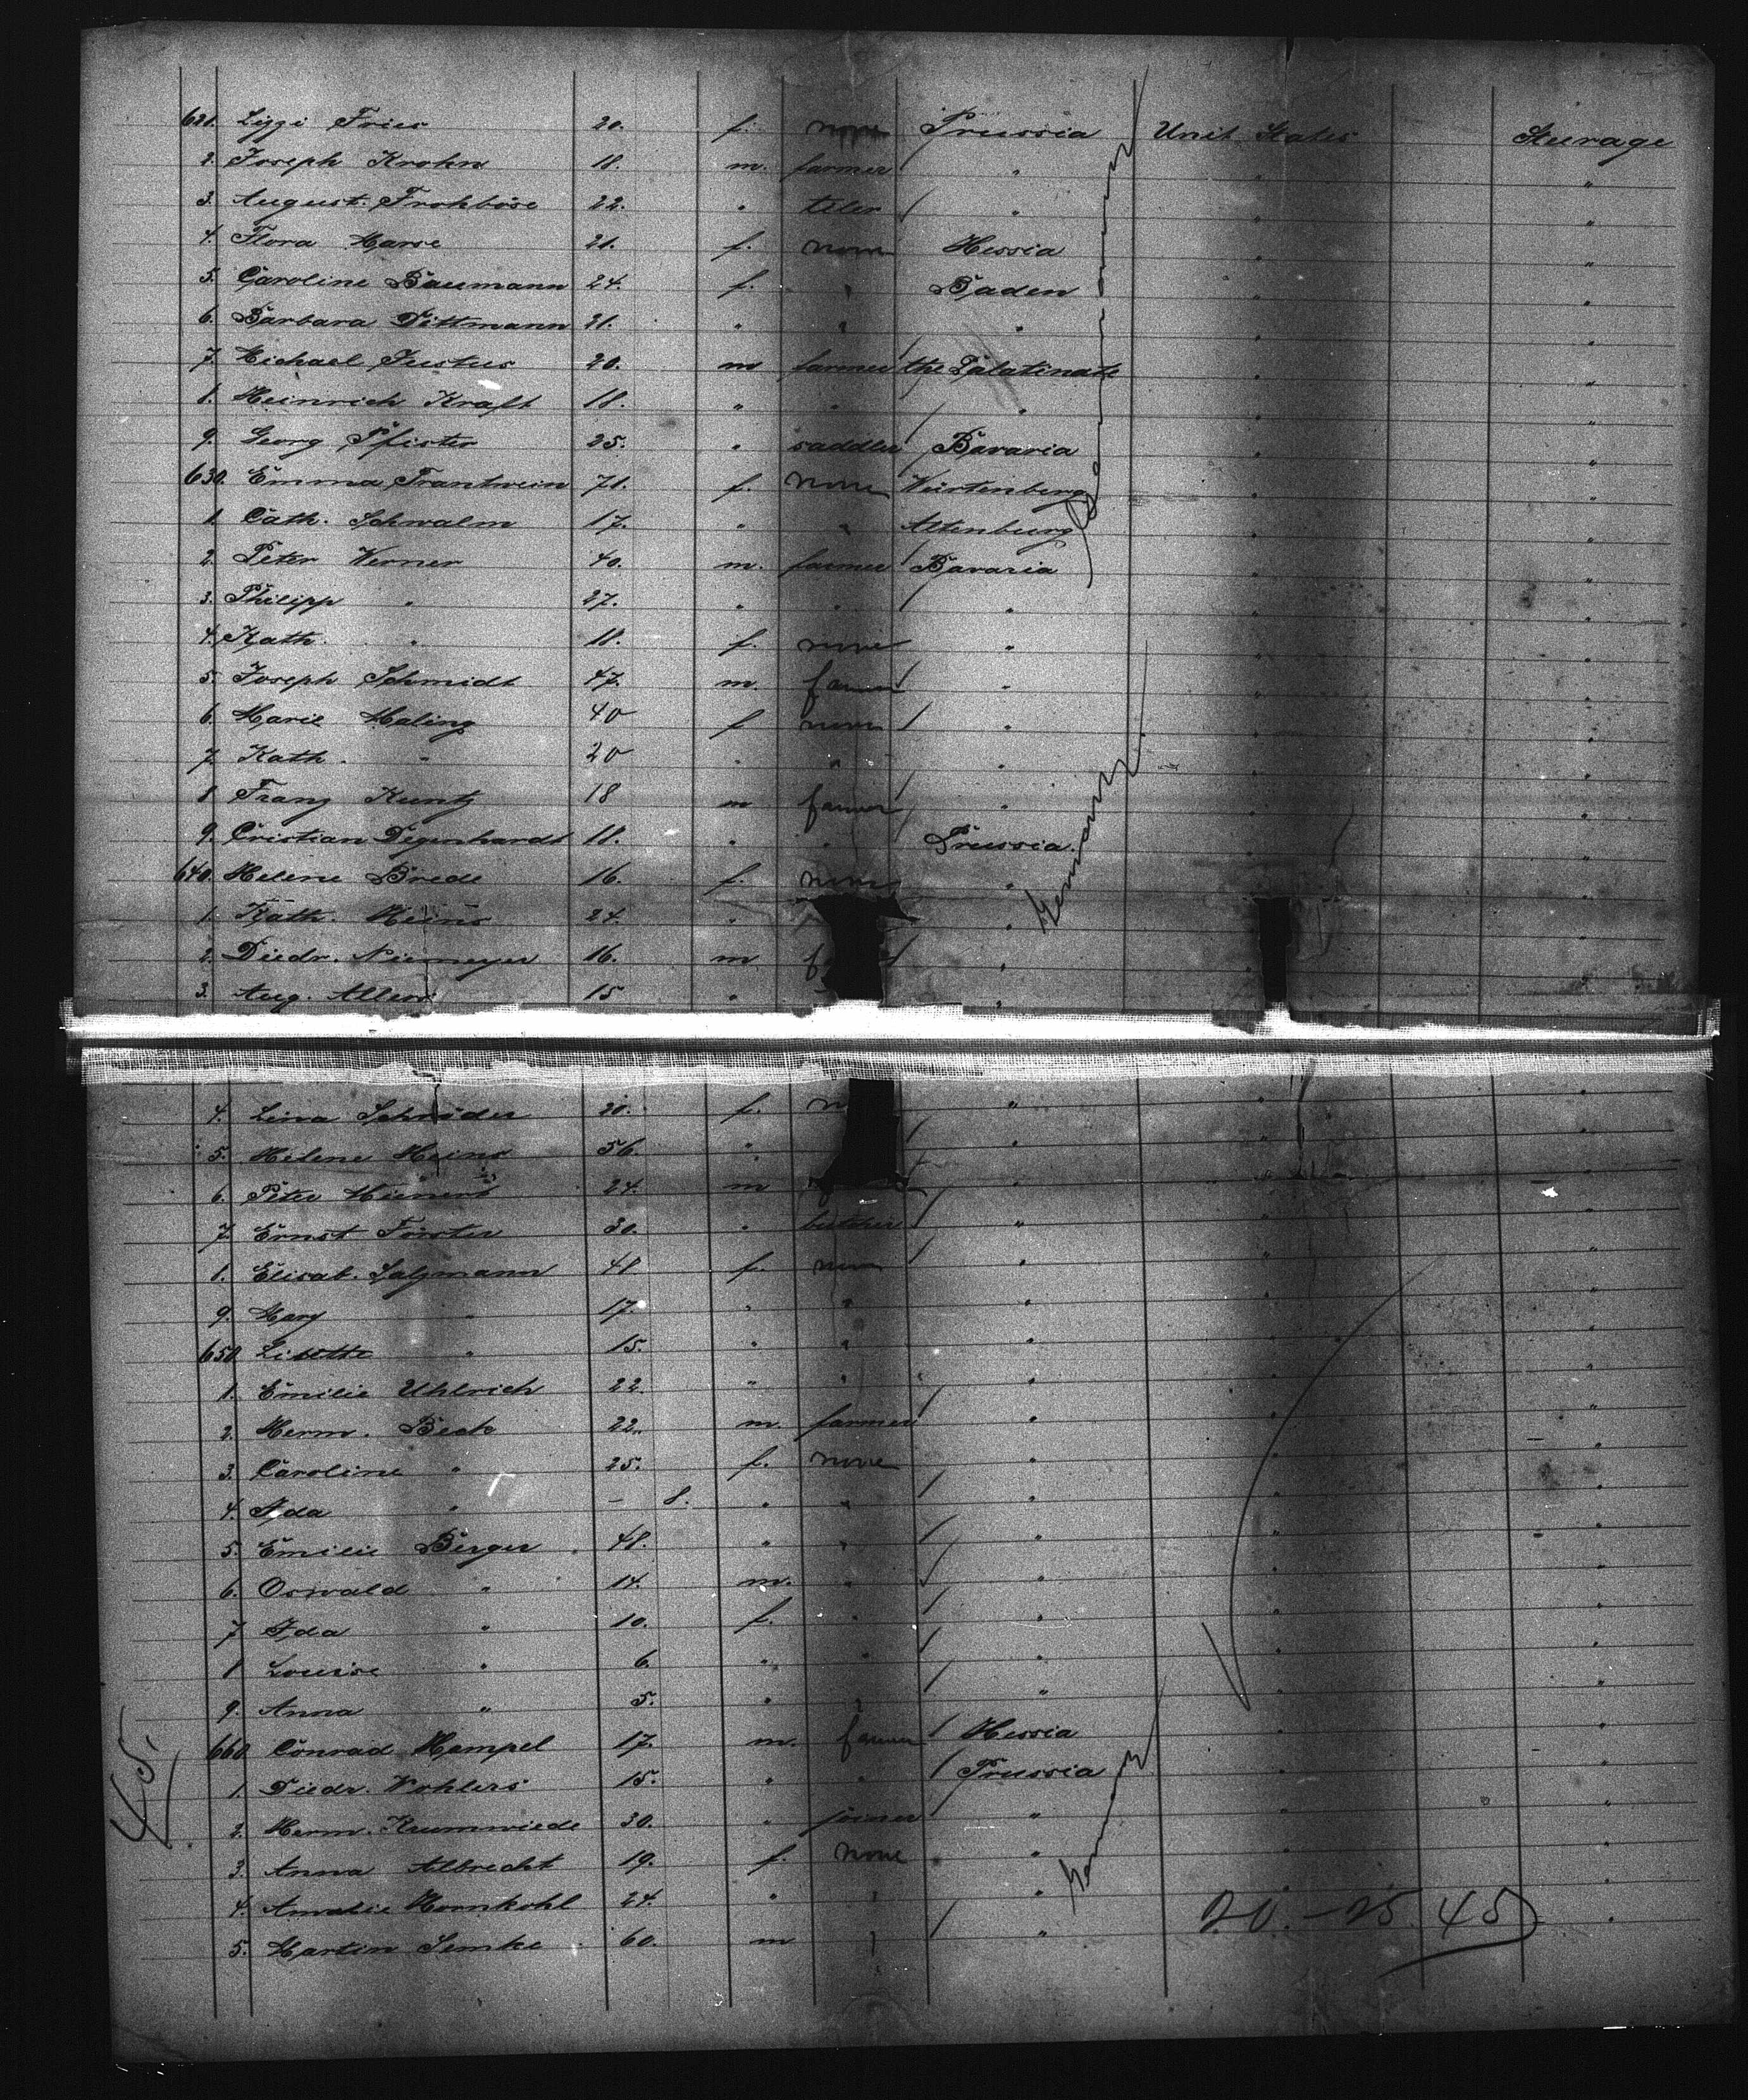 621. Lizzi Fries 20. f. none Prussia Unit. States Steerage
2. Joseph Krohn 18. m. farmer " " "
3. August. Frohböse 22. " tiler " " "
4. Flora Harse 21. f. none Hessia " "
5. Caroline Baumann 24. f. " Baden " "
6. Barbara Dittmann 21. " " " " "
7. Michael Justus 20. m farmer the Palatinate " "
8. Heinrich Kraft 18. " " " " "
9. Georg Pfister 25. " saddler Bavaria " "
630. Emma Trautwein 71. f. none Würtenberg " "
1. Cath. Schwalm 17. " " Altenburg " "
2. Peter Werner 40. m. farmer Bavaria " "
3. Philipp " 27. " " " " "
4. Kath. " 18. f. none " " "
5. Joseph Schmidt 47. m. farmer " " "
6. Marie Maling 40 f none " " "
7. Kath. " 20 " " " " "
8 Franz Kuntz 18 m farmer " " "
9. Cristian Degenhardt 18. " " Prussia. " "
640. Helene Brede 16. f. none " " "
1. Kath. Heins 24. " " " "
2. Diedr. Niemeyer 16. m " " "
3. Aug. 15 " "
Germany
Germany
4. Lina Schröder 20. f. " " "
5. Helene Heins 56. " " " "
6. Peter 24. m " " "
7. Ernst Förster 30. " butcher " " "
8. Elisab. Salzmann 48 f. none " " "
9. Mary " 17. " " " " "
650 Lisette " 15. " " " " "
1. Emilie Uhlrich 22. " " " " "
2. Herm. Beck 22. m. farmer " " "
3. Caroline " 25. f. none " " "
4. Ida " – 8. " " " " "
5. Emilie Berger 48. " " " " "
6. Oswald " 14. m. " " " "
7. Ida " 10. f. " " " "
8 Louise " 6. " " " " "
9. Anna " 5. " " " " "
660 Conrad Hampel 17. m. farmer Hessia " "
1. Diedr. Wohlers 15. " " Prussia " "
2. Herm. Krumwiede 30. " joiner " " "
3. Anna Albrecht 19. f. none " " "
4. Amalie Hornkohl 24. " " " " "
5. Martin Lemke 60. m " " "
Germany
45.
20. – 25. 45